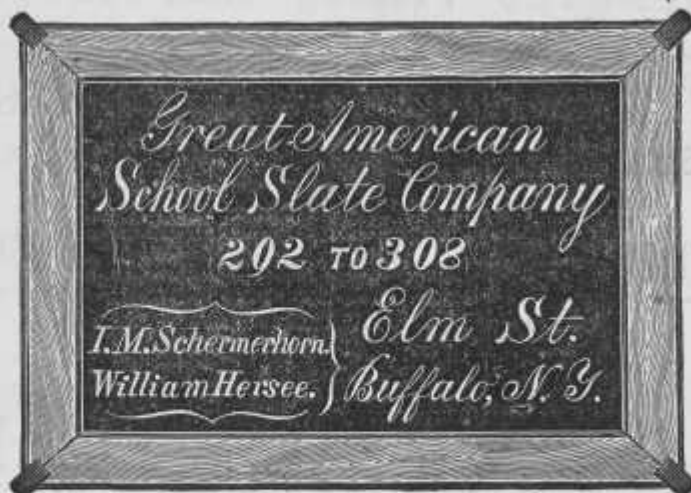 Great American
School Slate Company
292 TO 308
I. M. Schermerhorn.
William Hersee.
Elm St.
Buffalo, N. Y.